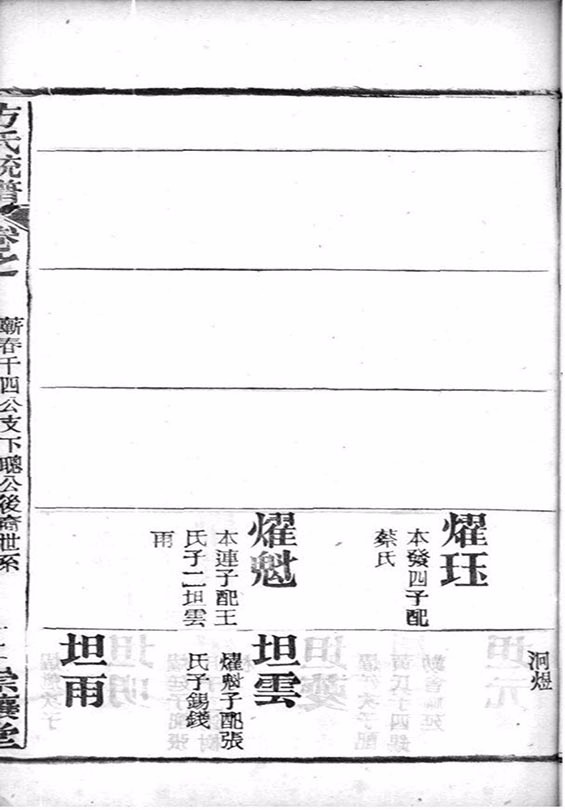 耀珏
本發四子配
蔡氏
耀魁
本連子配王
氏子二坦雲
雨
泂煜
坦雲
耀魁子配張
氏子錫錢
坦雨
方氏統譜
卷之
蘄春千四公支下聰公後裔世系